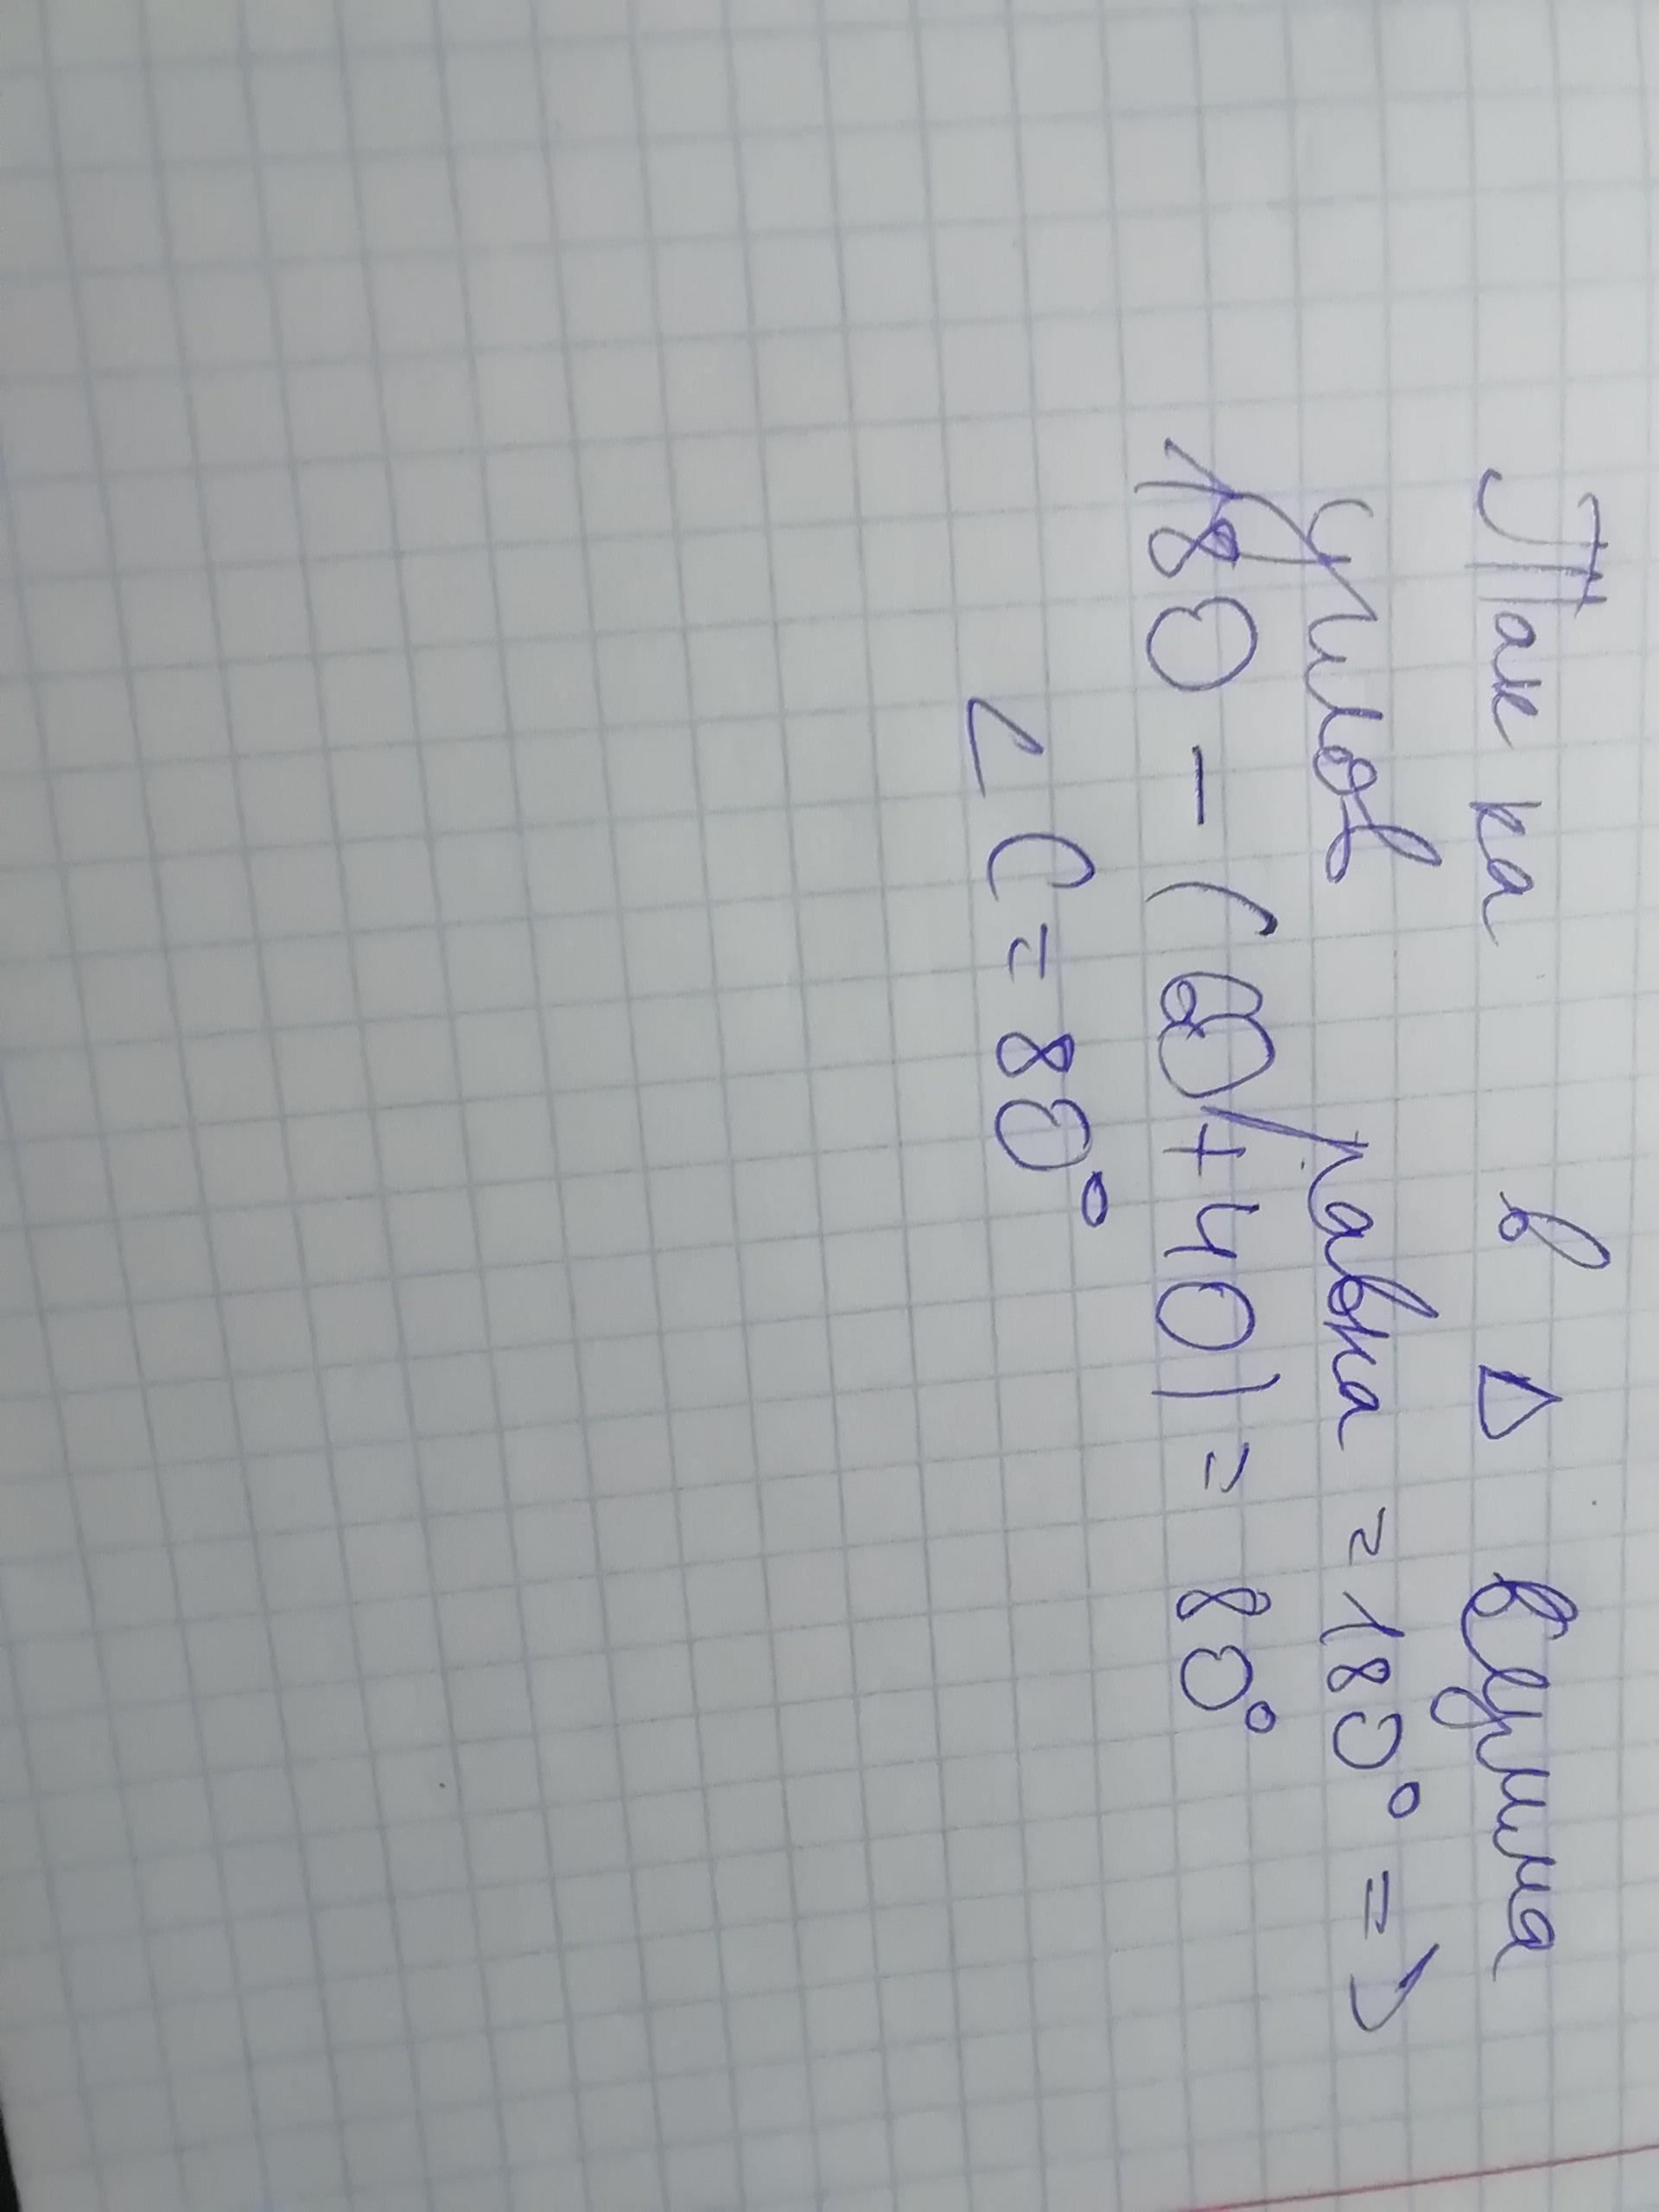 Так ка в △ Сумма
углов равна = 180° =>
180 - (60 + 40) = 80°
∠C = 80°